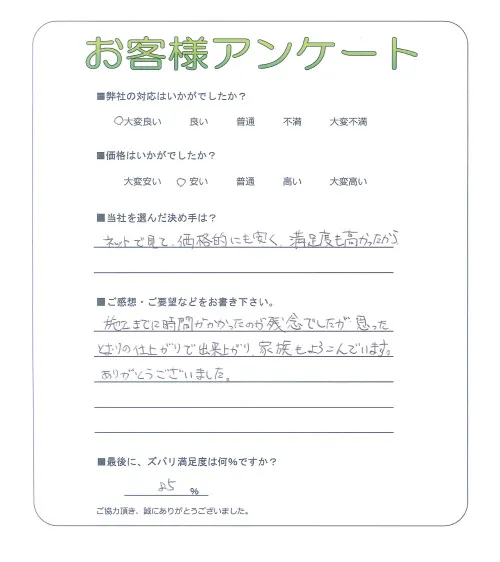 お客様アンケート
■弊社の対応はいかがでしたか？
○大変良い 良い 普通 不満 大変不満
■価格はいかがでしたか？
大変安い ○安い 普通 高い 大変高い
■当社を選んだ決め手は？
ネットで見て、価格的にも安く、満足度も高かったから
■ご感想・ご要望などをお書き下さい。
施工までに時間がかかったのが残念でしたが思った
とおりの仕上がりで出来上がり、家族もよろこんでいます。
ありがとうございました。
■最後に、ズバリ満足度は何%ですか？
85 %
ご協力頂き、誠にありがとうございました。